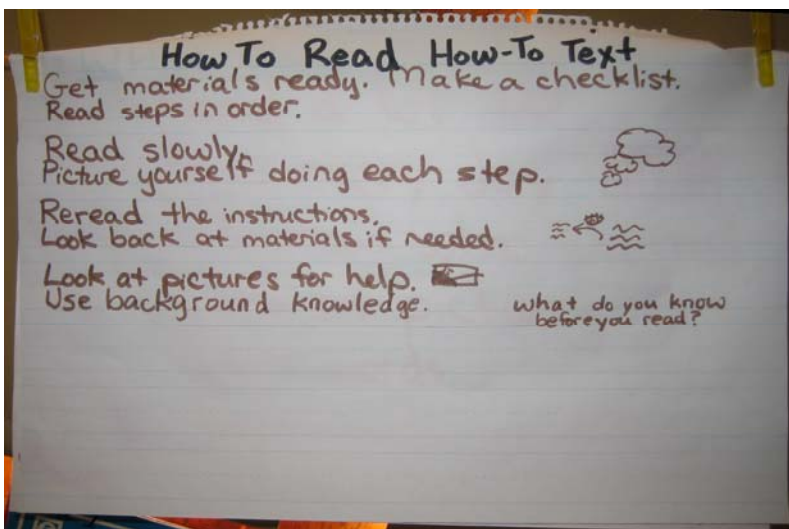 How To Read How-To Text
Get materials ready. Make a checklist.
Read steps in order.
Read slowly.
Picture yourself doing each step.
Reread the instructions.
Look back at materials if needed.
Look at pictures for help.
Use background knowledge.
what do you know
before you read?